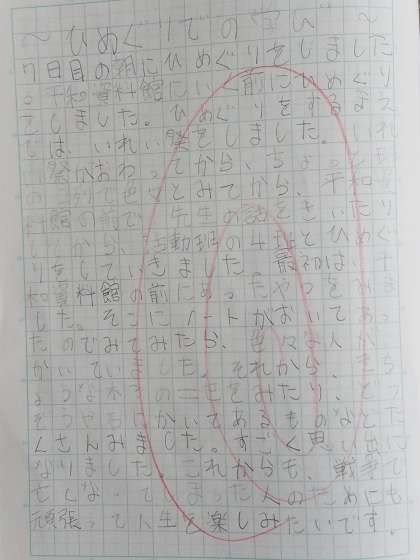 ～ひめぐりでの学び～
7日目の朝にひめぐりをしました
平和資料館にいく前にひめぐり
をしました。ひめぐりをするまえ
では、いれい祭をしました。いれ
い祭がおわってから、ちょっと
列でせきとみてから、平和
館の前で先生の話をきいたり
してから、活動班の4班とひめぐ
りをしていきました。最初は、平
和資料館の前にあったやつをみま
した。そこにノートがおいてあっ
たのでみてみたら、色々な人が
かいていました。それから、きち
ょうな木の をみたり、どう
ぞうやもにかいてあるものなどた
くさんみました。すごく思い出に
なりました。これからも、戦争で
亡くなってしまった人のためにも
頑張って人生を楽しみたいです。